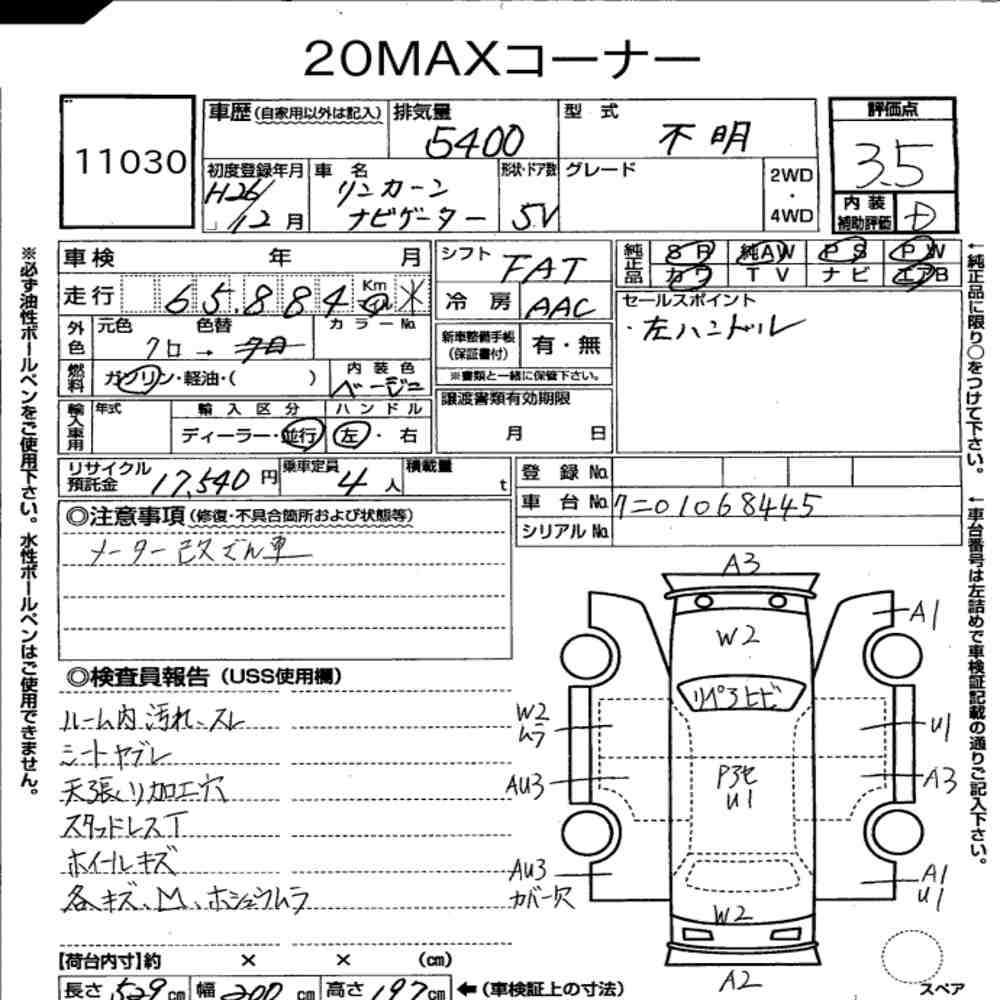 20MAXコーナー
11030
車歴(自家用以外は記入)
排気量
5400
型式
不明
評価点
3.5
内装
補助評価
D
初度登録年月
H26/
12月
車名
リンカーン
ナビゲーター
形状・ドア数
5V
グレード
2WD
・
4WD
車検 年 月
走行 65,884 Km マイル *
外色
元色 色替 カラーNo.
クロ →
燃料
ガソリン・軽油・( )
内装色
ベージュ
輸入車用
年式
輸入区分
ディーラー・並行
ハンドル
左・右
シフト FAT
冷房 AAC
新車整備手帳
(保証書付)
有・無
※書類と一緒に保管下さい。
譲渡書類有効期限
月 日
純正品
SR 純AW PS PW
カワ TV ナビ エアB
セールスポイント
・左ハンドル
リサイクル
預託金
17,540円
乗車定員
4人
積載量
t
登録No.
車台No. フニ01068445
シリアルNo.
◎注意事項(修復・不具合箇所および状態等)
メーター改ざん車
◎検査員報告(USS使用欄)
ルーム内汚れ、スレ
シートヤブレ
天張り加工穴
スタッドレスT
ホイールキズ
各キズ、M、ホシュウムラ
A3
A1
W2
リペアヒビ
W2
ムラ
U1
AU3
P3セ
U1
A3
AU3
カバー欠
A1
U1
W2
A2
スペア
【荷台内寸】約 × × (cm)
長さ529cm 幅200cm 高さ197cm ←(車検証上の寸法)
※必ず油性ボールペンをご使用下さい。水性ボールペンはご使用できません。
←純正品に限り○をつけて下さい。
←車台番号は左詰めで車検証記載の通りご記入下さい。